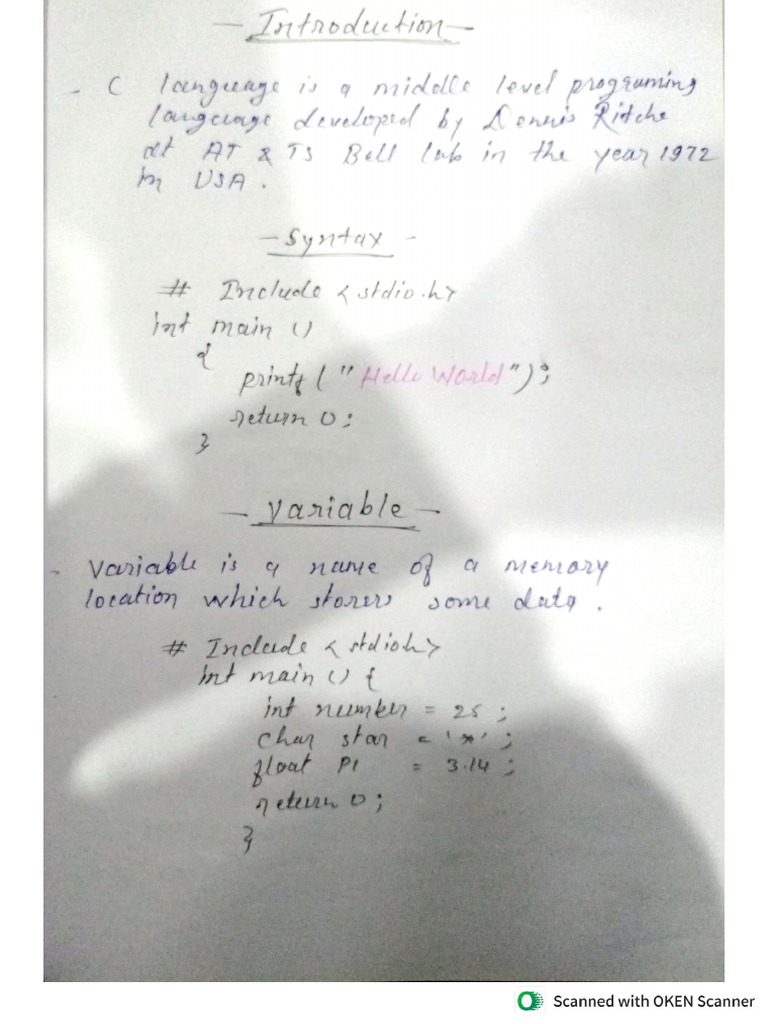 - Introduction -
- C language is a middle level programing
language developed by Dennis Ritche
at AT & TS Bell lab in the year 1972
in USA.
- Syntax -
# Include <stdio.h>
int main ()
{
printf ("Hello World");
return 0;
}
- Variable -
- Variable is a name of a memory
location which stores some data.
# Include <stdioh>
int main () {
int number = 25 ;
char star = '*' ;
float PI = 3.14 ;
return 0;
}
Scanned with OKEN Scanner